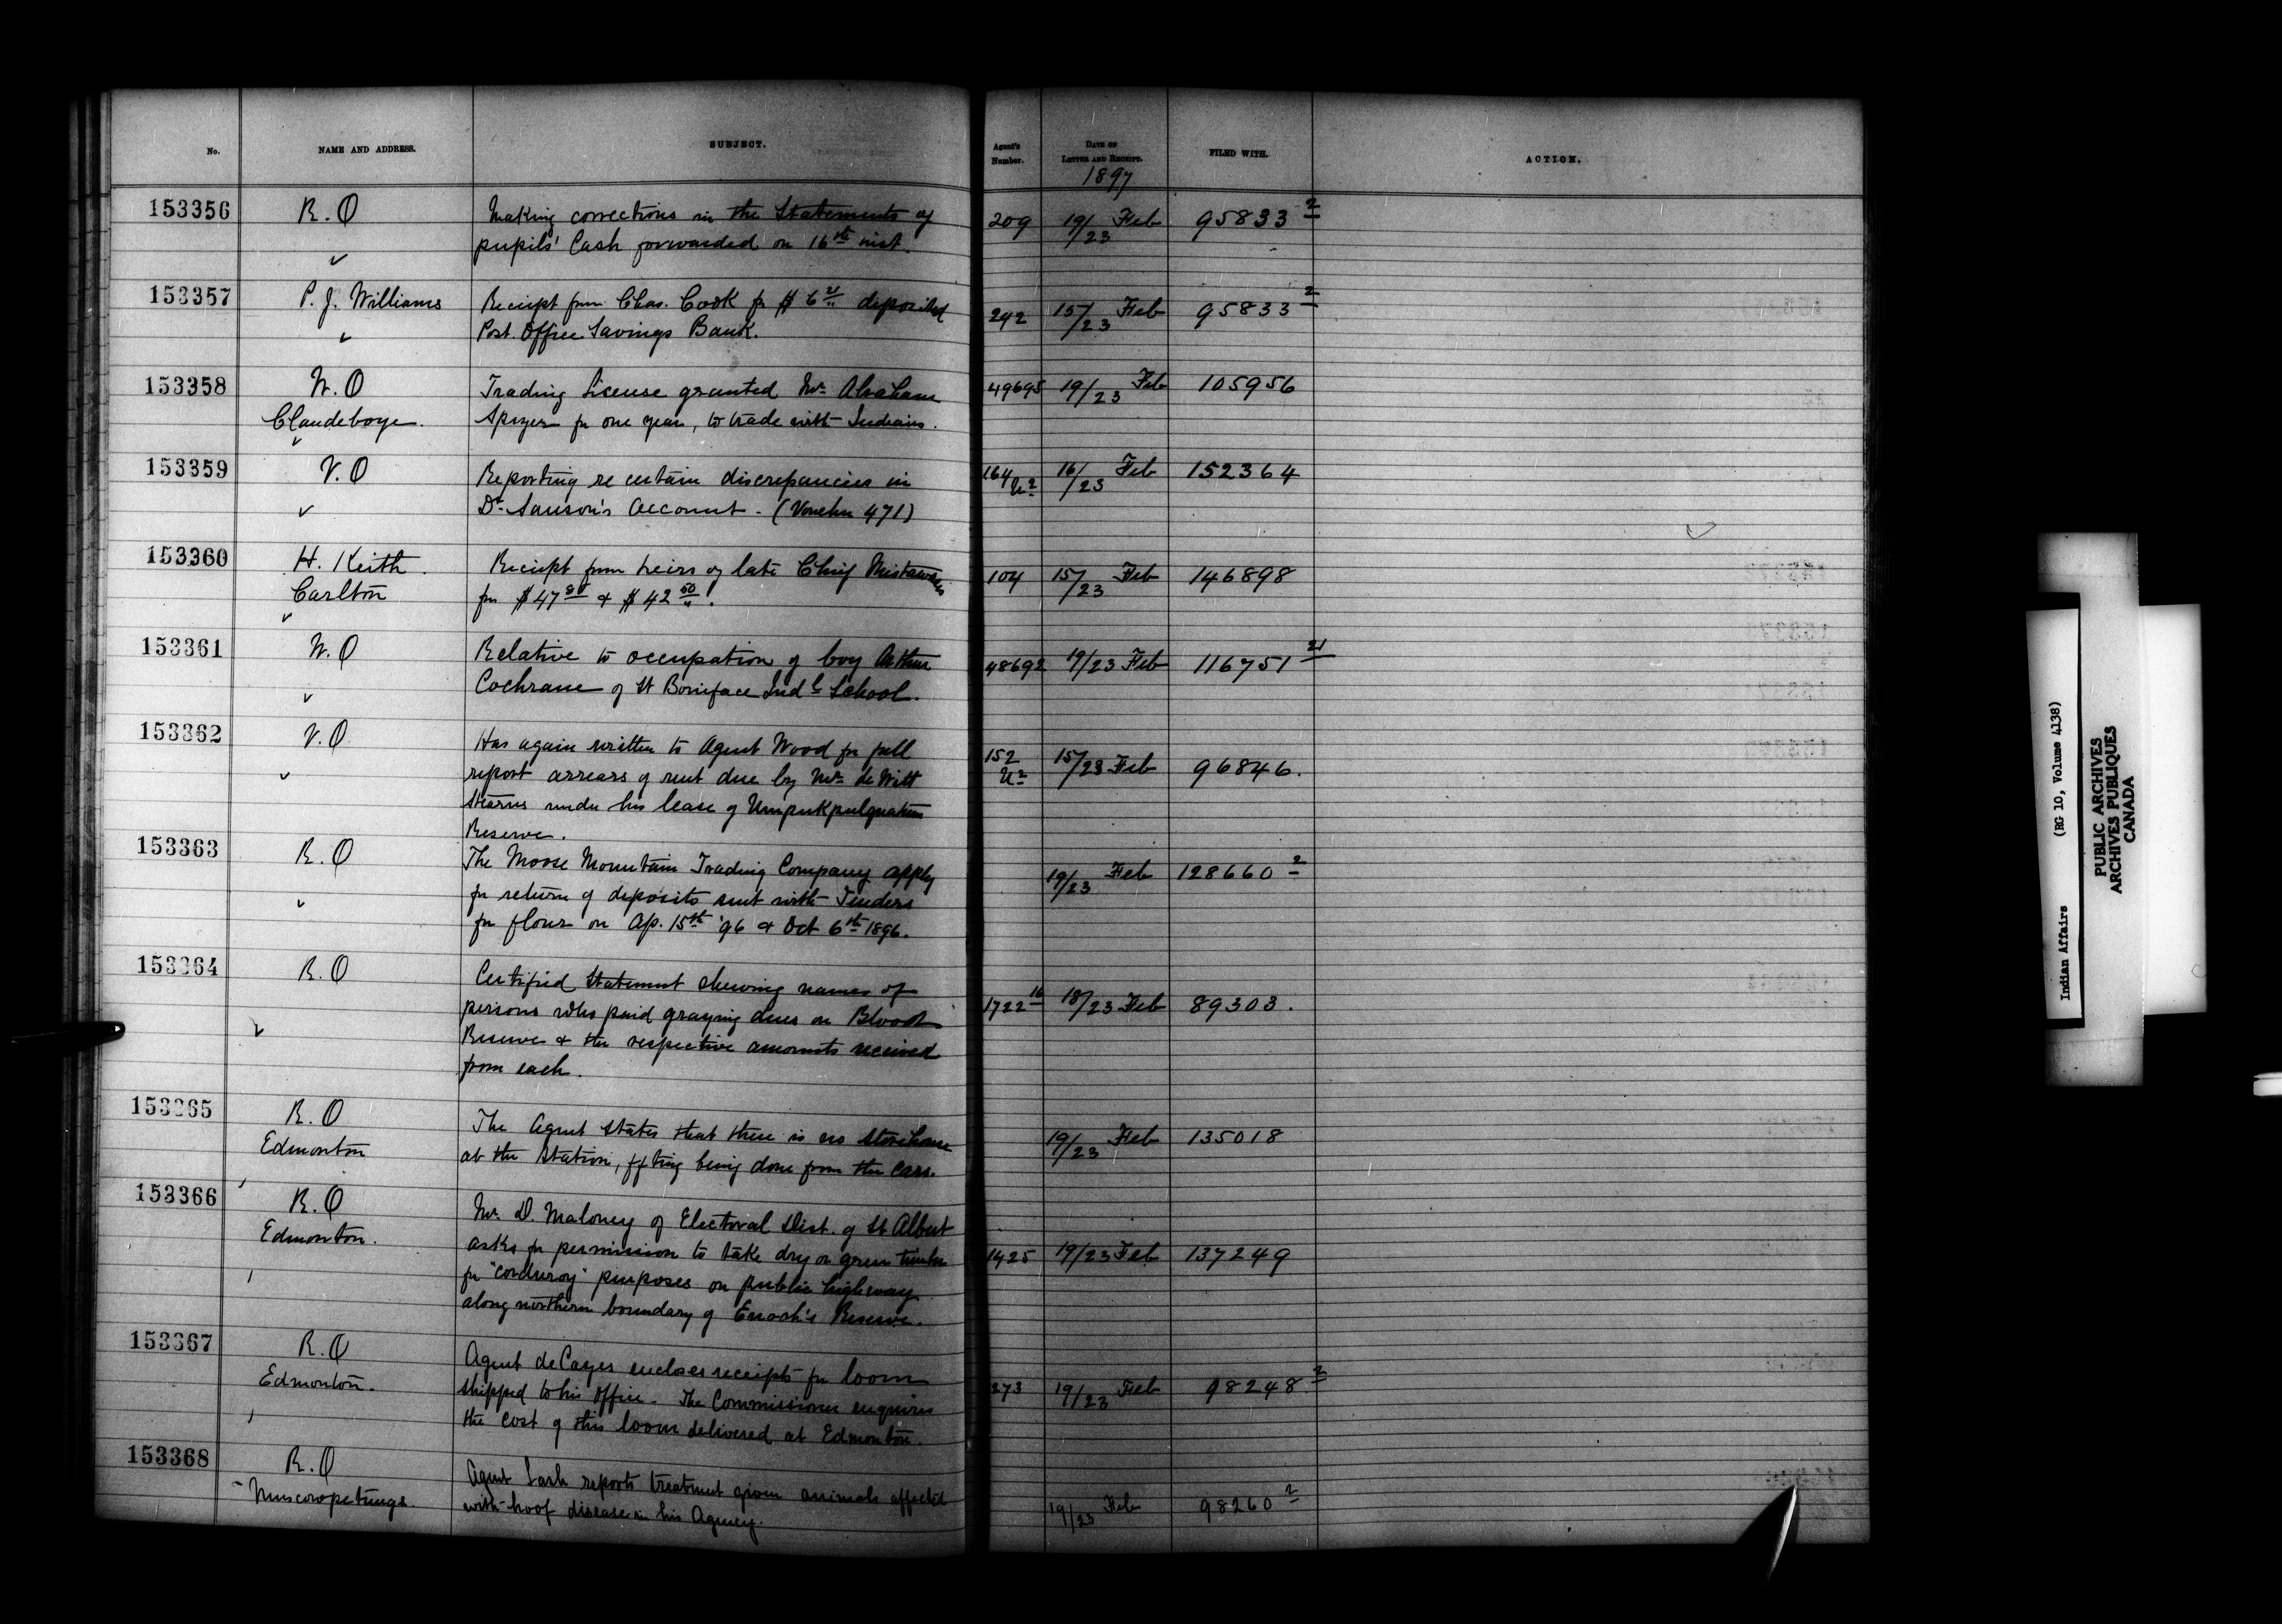 No.
NAME AND ADDRESS.
SUBJECT.
Agent's
Number.
DATE OF
LETTER AND RECEIPT.
1897
FILED WITH.
ACTION.
153356
R. O
Making corrections in the Statements of
pupils' Cash forwarded on 16th inst.
209
19/23 Feb
95833 2
153357
P. J. Williams
Receipt from Chas. Cook for $ 6 21 deposited
Post. Office Savings Bank.
242
15/23 Feb
95833 2
153358
W. O
Clandeboye.
Trading License granted Mr. Abraham
for one year, to trade with Indians.
49695
19/23 Feb
105956
153359
V. O
Reporting re certain discrepancies in
Dr. Sanson's Account. (Voucher 471)
164
16/23 Feb
152364
153360
H. Keith
Carlton
Receipt from heirs of late Chief Mistawasis
for $47 80 & $42 50.
104
15/23 Feb
146898
153361
W. O
Relative to occupation of boy Arthur
Cochrane of St Boniface Indl School.
48692
19/23 Feb
116751 21
153362
V. O
Has again written to Agent Wood for full
report arrears of rent due by Mr. de Witt
Stearns under his lease of
Reserve.
152
15/23 Feb
96846.
153363
R. O
The Moose Mountain Trading Company apply
for return of deposits sent with Tenders
for flour on Ap. 15th '96 & Oct 6th 1896.
19/23 Feb
128660 2
153364
R. O
Certified Statement shewing names of
persons who paid grazing dues on Blood
Reserve & the respective amounts received
from each.
1722 16
18/23 Feb
89303.
153365
R. O
Edmonton
The Agent States that there is no Storehouse
at the Station, ffting being done from the cars.
19/23 Feb
135018
153366
R. O
Edmonton.
Mr. D. Maloney of Electoral Dist. of St Albert
asks for permission to take dry or green timber
for "corduroy" purposes on public highway
along northern boundary of Enoch's Reserve.
1425
19/23 Feb
137249
153367
R. O
Edmonton.
Agent de Cazes encloses receipts for loom
shipped to his Office. The Commissioner enquires
the cost of this loom delivered at Edmonton.
273
19/23 Feb
98248. 2
153368
R. O
Muscowpetungs.
Agent Lash reports treatment given animals affected
with hoof disease in his Agency.
19/23 Feb
98260 2
Indian Affairs (RG 10, Volume 4138)
PUBLIC ARCHIVES
ARCHIVES PUBLIQUES
CANADA